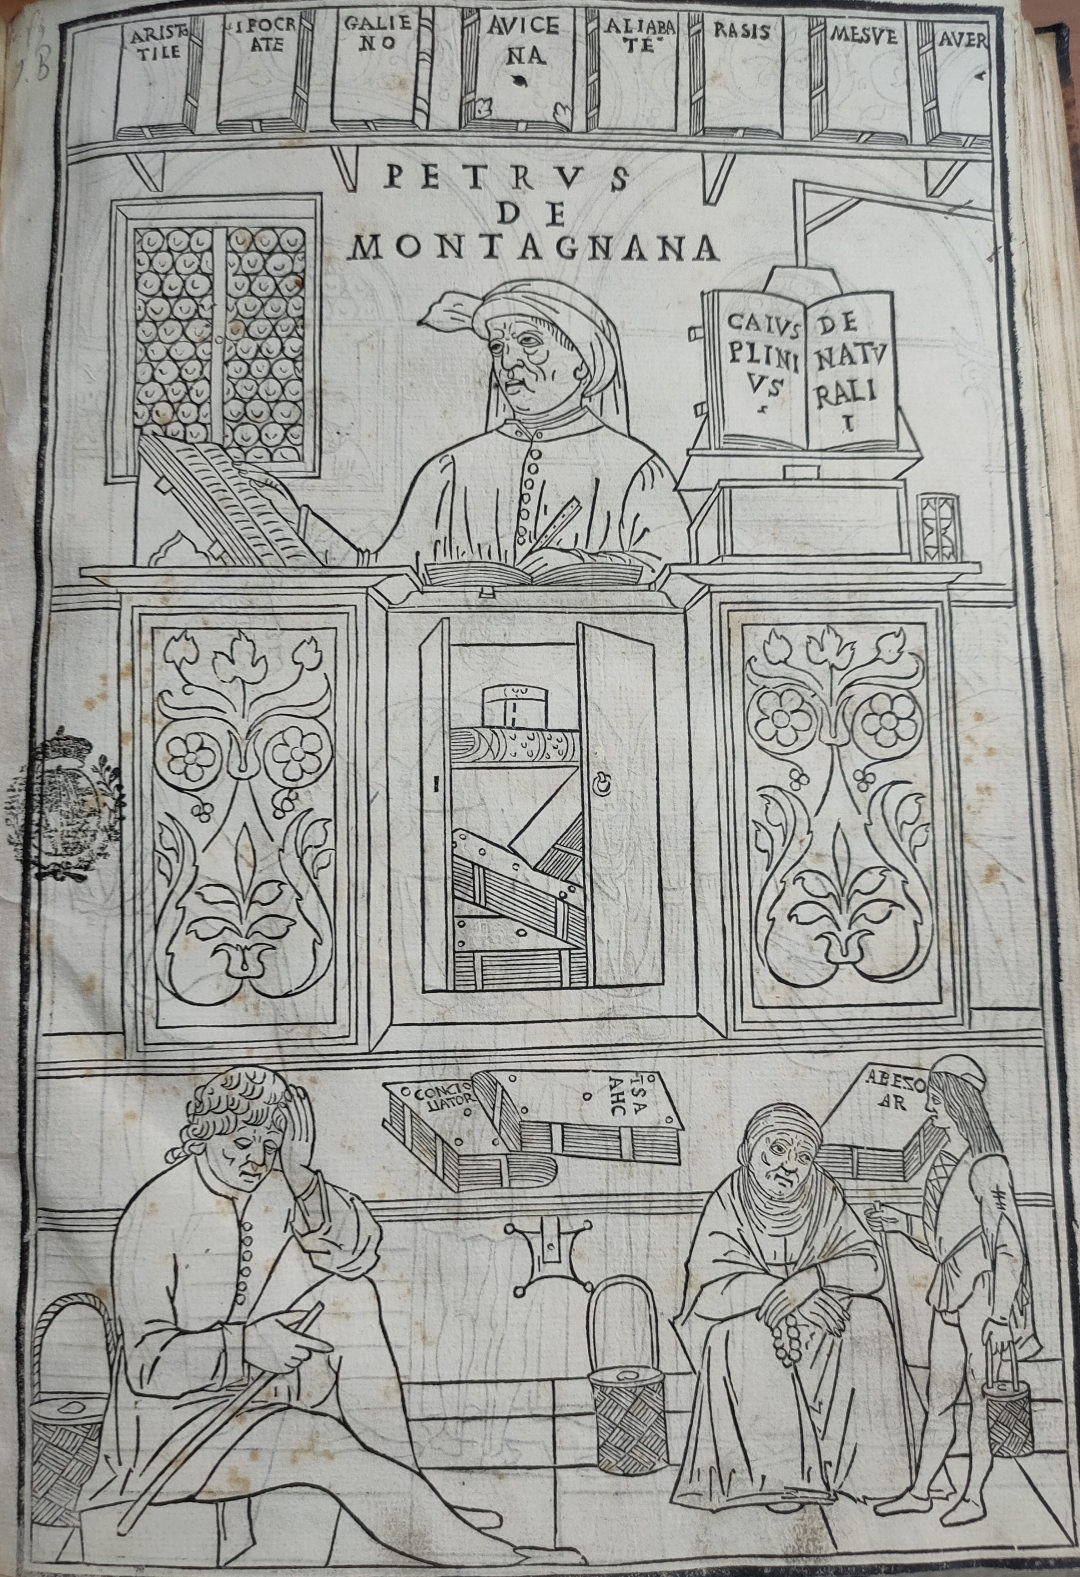 ARISTO
TILE
IPOCR
ATE
GALIE
NO
AVICE
NA
ALIABA
TE
RASIS
MESVE
AVER
PETRVS
DE
MONTAGNANA
CAIVS
PLINI
VS
DE
NATV
RALI
I
CONCI
LIATOR
ISA
AHC
ABEZO
AR